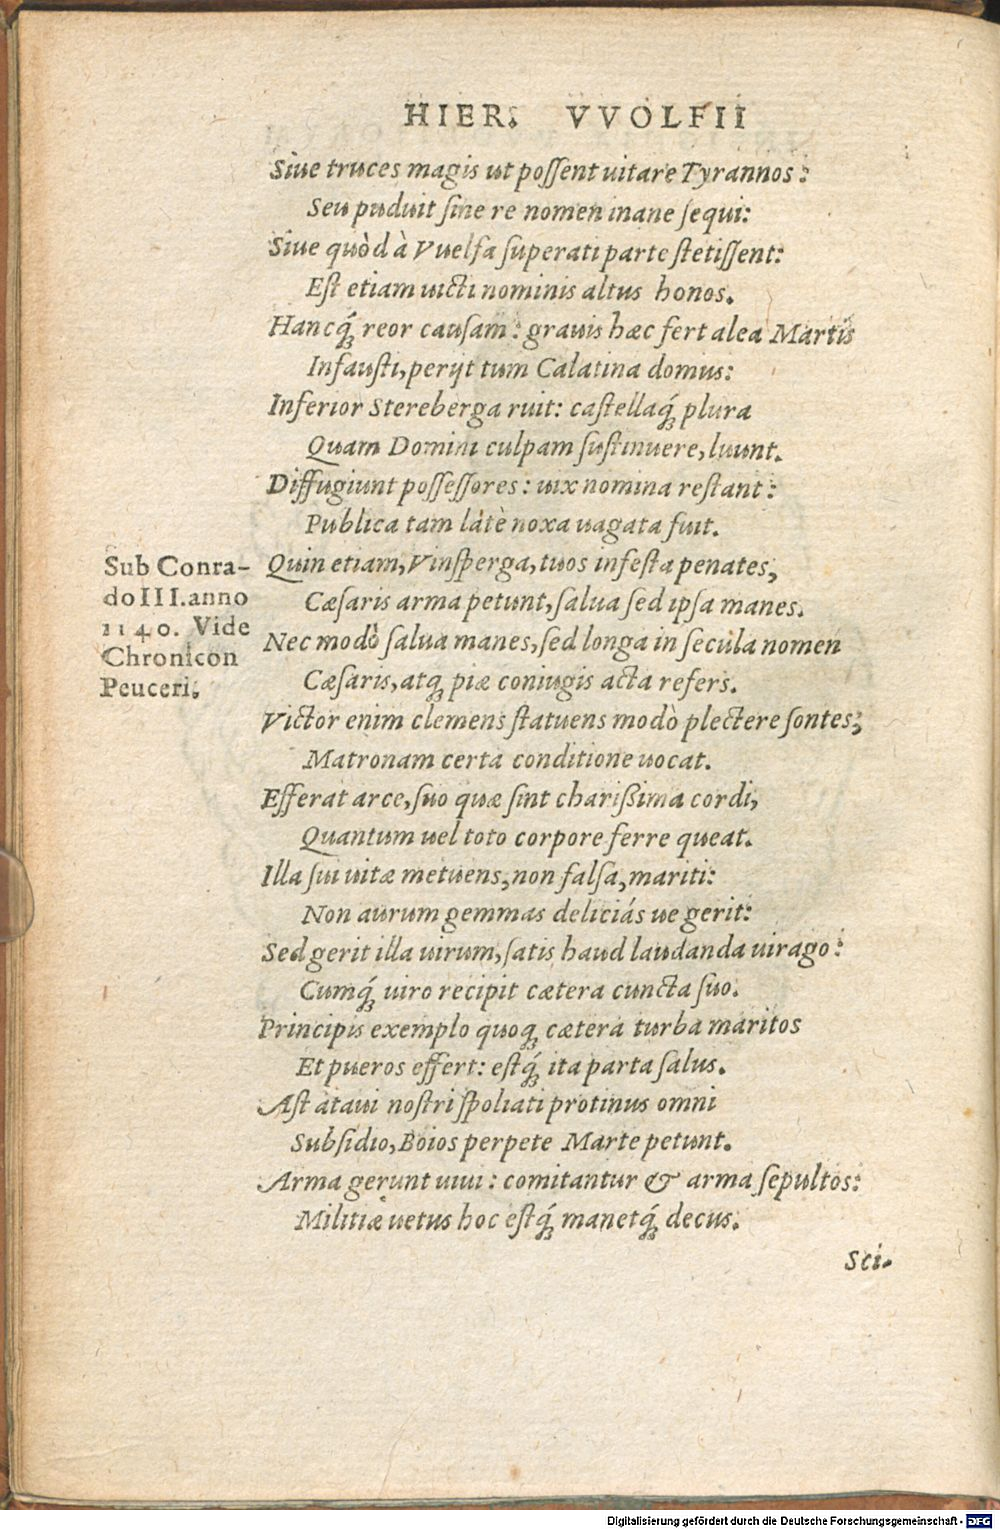 HIER. VVOLFII
Siue truces magis ut poſſent uitare Tyrannos:
Seu puduit ſine re nomen inane ſequi:
Siue quòd à Vuelfa ſuperati parte ſtetiſſent:
Eſt etiam uicti nominis altus honos.
Hancq́; reor cauſam: grauis hæc fert alea Martis
Infauſti, perijt tum Calatina domus:
Inferior Stereberga ruit: caſtellaq́; plura
Quam Domini culpam ſuſtinuere, luunt.
Diffugiunt poſſeſſores: uix nomina reſtant:
Publica tam latè noxa uagata fuit.
Quin etiam, Vinſperga, tuos infeſta penates,
Cæſaris arma petunt, ſalua ſed ipſa manes.
Nec modò ſalua manes, ſed longa in ſecula nomen
Cæſaris, atq; piæ coniugis acta refers.
Victor enim clemens ſtatuens modò plectere ſontes;
Matronam certa conditione uocat.
Efferat arce, ſuo quæ ſint charißima cordi,
Quantum uel toto corpore ferre queat.
Illa ſui uitæ metuens, non falſa, mariti:
Non aurum gemmas deliciás ue gerit:
Sed gerit illa uirum, ſatis haud laudanda uirago:
Cumq́; uiro recipit cætera cuncta ſuo.
Principis exemplo quoq; cætera turba maritos
Et pueros effert: eſtq́; ita parta ſalus.
Aſt ataui noſtri ſpoliati protinus omni
Subſidio, Boios perpete Marte petunt.
Arma gerunt uiui: comitantur & arma ſepultos:
Militiæ uetus hoc eſtq́; manetq́; decus.
Sci-
Sub Conra-
do III. anno
1140. Vide
Chronicon
Peuceri.
Digitalisierung gefördert durch die Deutsche Forschungsgemeinschaft - DFG